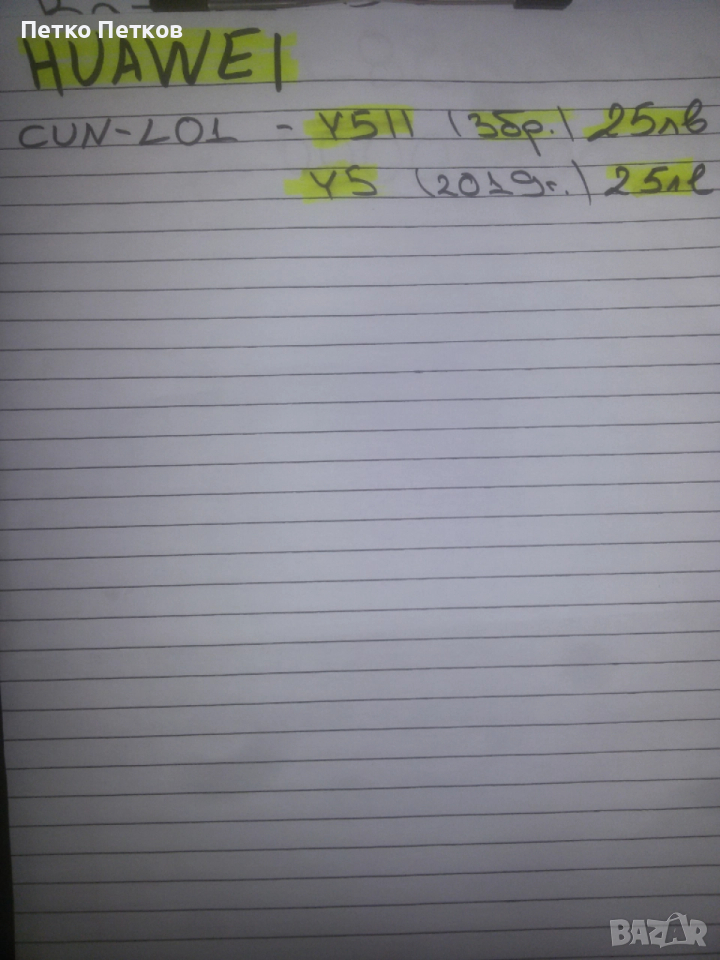 Петко Петков
HUAWEI
CUN-L01 - Y5II (3бр.) 25лв
Y5 (2019г.) 25лв
BAZAR